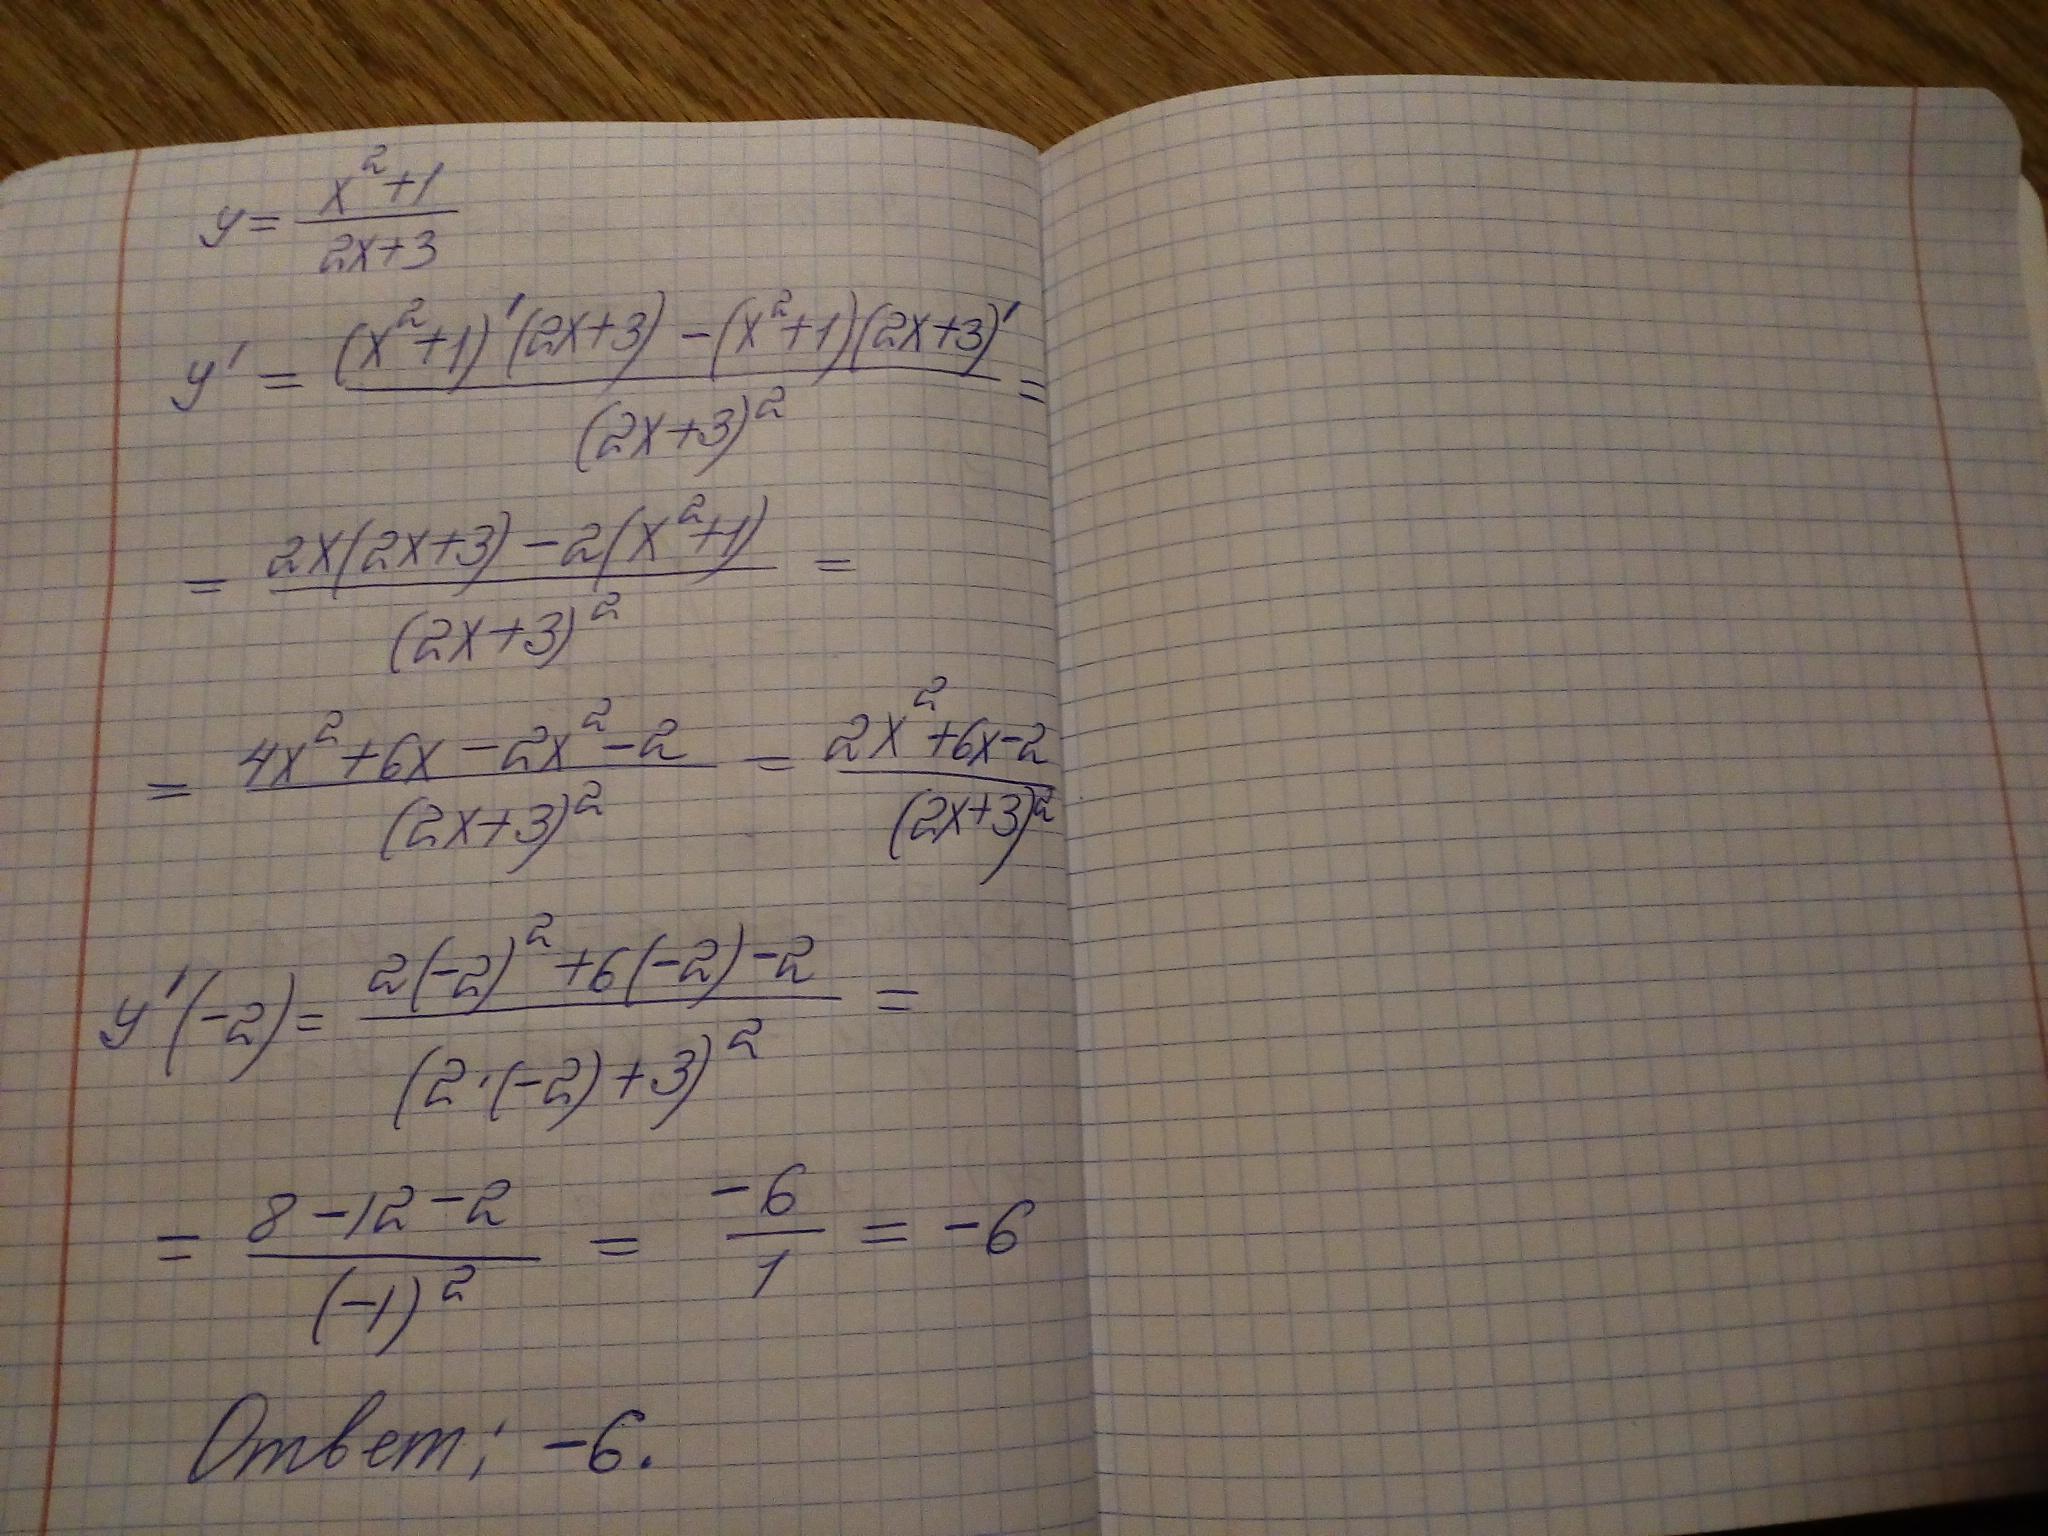 y = (x²+1)/(2x+3)
y' = ((x²+1)'(2x+3) - (x²+1)(2x+3)')/(2x+3)² =
= (2x(2x+3) - 2(x²+1))/(2x+3)² =
= (4x²+6x-2x²-2)/(2x+3)² = (2x²+6x-2)/(2x+3)²
y'(-2) = (2(-2)²+6(-2)-2)/(2·(-2)+3)² =
= (8-12-2)/(-1)² = -6/1 = -6
Ответ: -6.